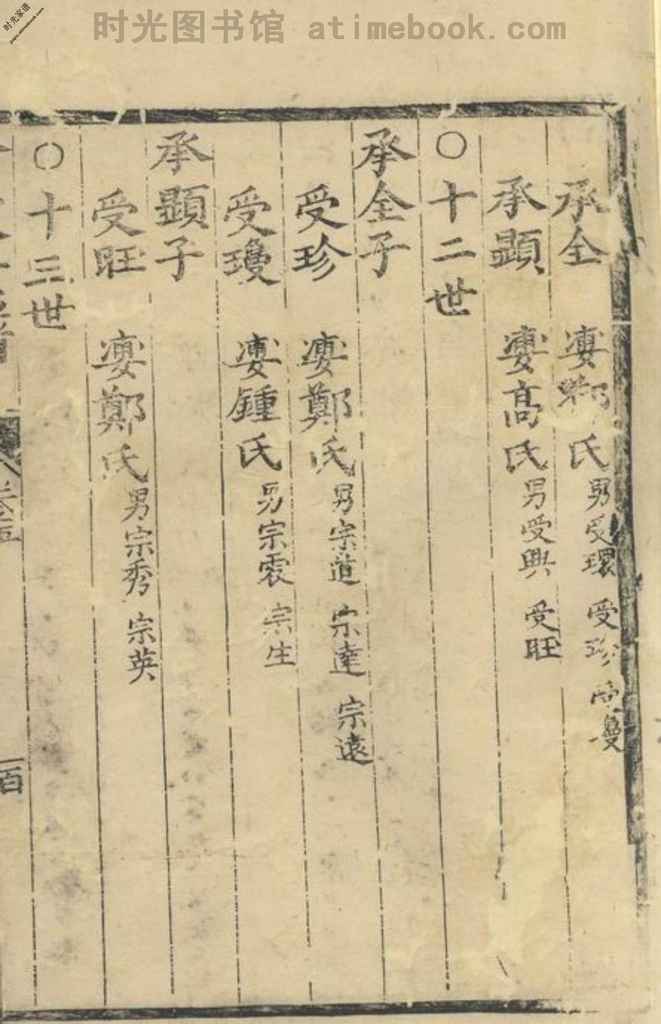 时光图书馆 atimebook.com
时光家谱
承全 娶鄭氏 男受環 受珍 受瓊
承顯 娶高氏 男受興 受旺
○十二世
承全子
受珍 娶鄭氏 男宗道 宗達 宗遠
受瓊 娶鍾氏 男宗震 宗生
承顯子
受旺 娶鄭氏 男宗秀 宗英
○十三世
一百